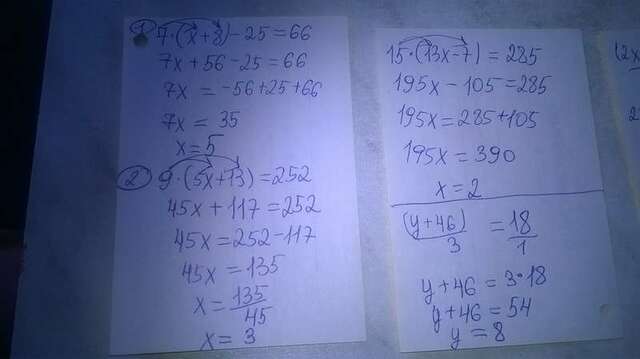 1) 7·(x+8)-25=66
7x+56-25=66
7x = -56+25+66
7x = 35
x=5
2) 9·(5x+13)=252
45x+117=252
45x=252-117
45x=135
x=135/45
x=3
15·(13x-7)=285
195x-105=285
195x=285+105
195x=390
x=2
(y+46)/3 = 18/1
y+46=3·18
y+46=54
y=8
(2x
2